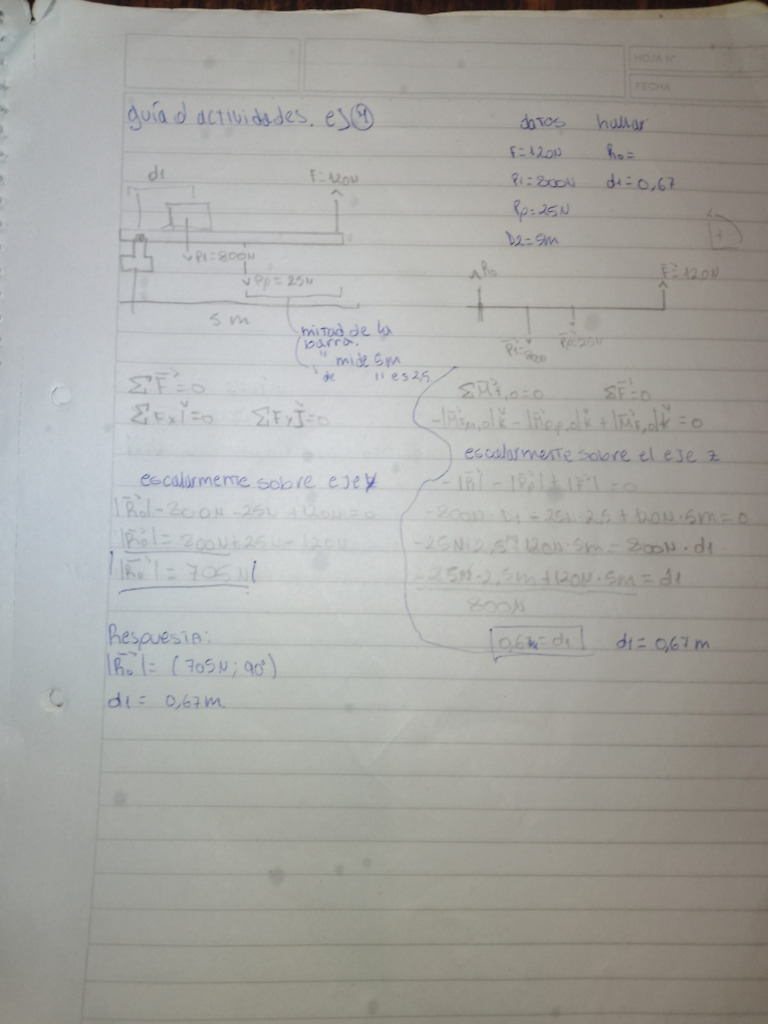 HOJA N°
FECHA
guía d actividades. ej 4
datos hallar
F=120N R₀=
P1=800N d1=0,67
Pp=25N
D2=5m
d1 F=120N
P1=800N
Pp=25N
5 m
mitad de la
barra.
" mide 5m
" de " es 2,5
R₀ F=120N
P1=800 Pp=25N
ΣF=0
ΣFx i=0 ΣFy j=0
escalarmente sobre eje y
|R₀|-800N-25N+120N=0
|R₀|=800N+25N-120N
|R₀|=705N
Respuesta:
|R₀|=(705N;90°)
d1= 0,67m
ΣF=0
escalarmente sobre el eje z
-|P1|-|Pp|+|F|=0
-800N·d1-25N·2,5+120N·5m=0
-25N·2,5+120N·5m=800N·d1
-25N·2,5m+120N·5m=d1
800N
d1=0,67m